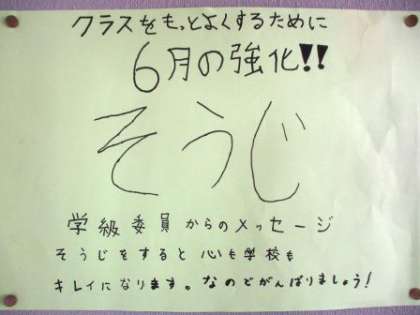 クラスをもっとよくするために
6月の強化!!
そうじ
学級委員からのメッセージ
そうじをすると心も学校も
キレイになります。なのでがんばりましょう!